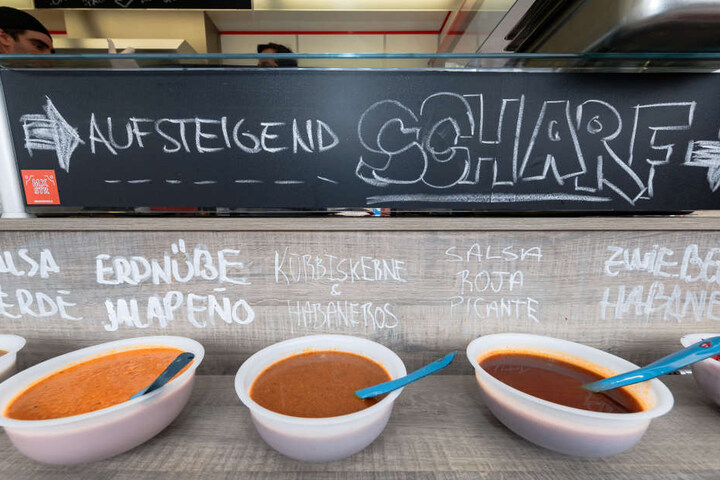 AUFSTEIGEND SCHARF
SALSA
VERDE
ERDNÜßE
JALAPEÑO
KÜRBISKERNE
&
HABANEROS
SALSA
ROJA
PICANTE
ZWIEBE
HABANE